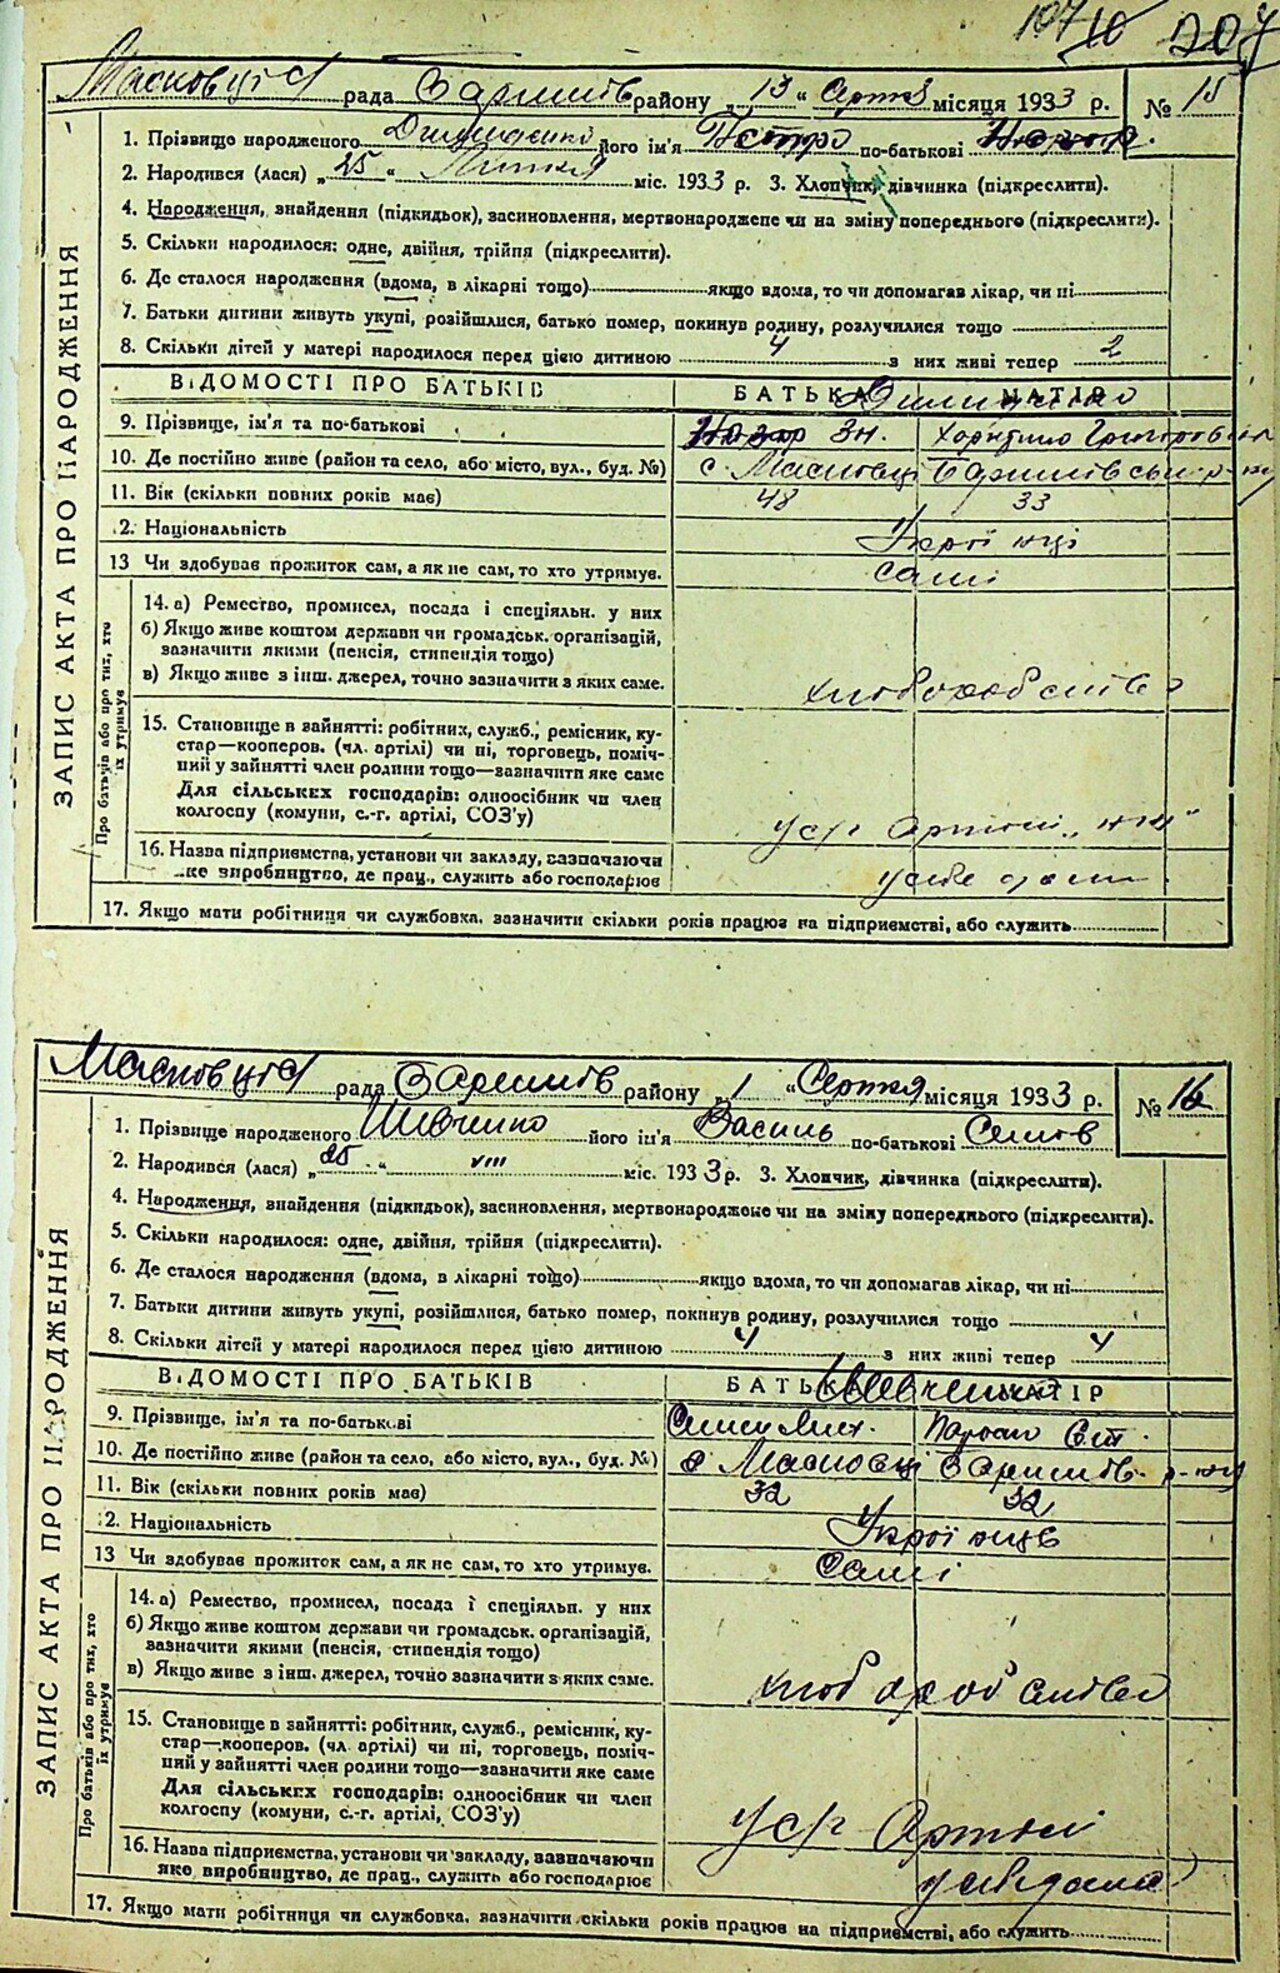 107 10 207
Масковці с/ рада Баришів району „ 13 “ Серпня місяця 1933 р. № 15
1. Прізвище народженого його ім'я Петро по-батькові
2. Народився (лася) „ 25 “ Липня міс. 1933 р. 3. Хлопчик, дівчинка (підкреслити).
4. Народження, знайдення (підкидьок), засиновлення, мертвонароджене чи на зміну попереднього (підкреслити).
5. Скільки народилося: одне, двійня, трійня (підкреслити).
6. Де сталося народження (вдома, в лікарні тощо) якщо вдома, то чи допомагав лікар, чи ні
7. Батьки дитини живуть укупі, розійшлися, батько помер, покинув родину, розлучилися тощо
8. Скільки дітей у матері народилося перед цією дитиною 4 з них живі тепер 2
ВІДОМОСТІ ПРО БАТЬКІВ БАТЬКА МАТІР
9. Прізвище, ім'я та по-батькові Назар Зн. Харитина Григоров
10. Де постійно живе (район та село, або місто, вул., буд. №) с. Масковці Баришівськ. р-ну
11. Вік (скільки повних років має) 48 33
2. Національність Украї нці
13 Чи здобував прожиток сам, а як не сам, то хто утримує. самі
14. а) Ремество, промисел, посада і спеціяльн. у них
б) Якщо живе коштом держави чи громадськ. організацій,
зазначити якими (пенсія, стипендія тощо)
в) Якщо живе з інш. джерел, точно зазначити з яких саме. хлоборобство
15. Становище в зайнятті: робітник, служб., ремісник, ку-
стар—кооперов. (чл. артілі) чи ні, торговець, поміч-
ний у зайнятті член родини тощо—зазначити яке саме
Для сільських господарів: одноосібник чи член
колгоспу (комуни, с.-г. артілі, СОЗ'у) у с/г Артілі
16. Назва підприємства, установи чи закладу, зазначаючи
яке виробництво, де прац., служить або господарює
17. Якщо мати робітниця чи службовка, зазначити скільки років працює на підприємстві, або служить
ЗАПИС АКТА ПРО НАРОДЖЕННЯ
Про батьків або про тих, хто їх утримує
Масковці с/ рада Баришів району „ 1 “ Серпня місяця 1933 р. № 16
1. Прізвище народженого Шевченко його ім'я Василь по-батькові Семов
2. Народився (лася) „ 25 “ VIII міс. 1933 р. 3. Хлопчик, дівчинка (підкреслити).
4. Народження, знайдення (підкидьок), засиновлення, мертвонароджене чи на зміну попереднього (підкреслити).
5. Скільки народилося: одне, двійня, трійня (підкреслити).
6. Де сталося народження (вдома, в лікарні тощо) якщо вдома, то чи допомагав лікар, чи ні
7. Батьки дитини живуть укупі, розійшлися, батько помер, покинув родину, розлучилися тощо
8. Скільки дітей у матері народилося перед цією дитиною 4 з них живі тепер 4
ВІДОМОСТІ ПРО БАТЬКІВ БАТЬКА МАТІР
Шевченки
9. Прізвище, ім'я та по-батькові
10. Де постійно живе (район та село, або місто, вул., буд. №) с Масковці Баришів. р-ну
11. Вік (скільки повних років має) 32 32
2. Національність Украї нців
13 Чи здобував прожиток сам, а як не сам, то хто утримує. Самі
14. а) Ремество, промисел, посада і спеціяльн. у них
б) Якщо живе коштом держави чи громадськ. організацій,
зазначити якими (пенсія, стипендія тощо)
в) Якщо живе з інш. джерел, точно зазначити з яких саме. хлоборобство
15. Становище в зайнятті: робітник, служб., ремісник, ку-
стар—кооперов. (чл. артілі) чи ні, торговець, поміч-
ний у зайнятті член родини тощо—зазначити яке саме
Для сільських господарів: одноосібник чи член
колгоспу (комуни, с.-г. артілі, СОЗ'у) у с/г Артілі
16. Назва підприємства, установи чи закладу, зазначаючи
яке виробництво, де прац., служить або господарює
17. Якщо мати робітниця чи службовка, зазначити скільки років працює на підприємстві, або служить
ЗАПИС АКТА ПРО НАРОДЖЕННЯ
Про батьків або про тих, хто їх утримує